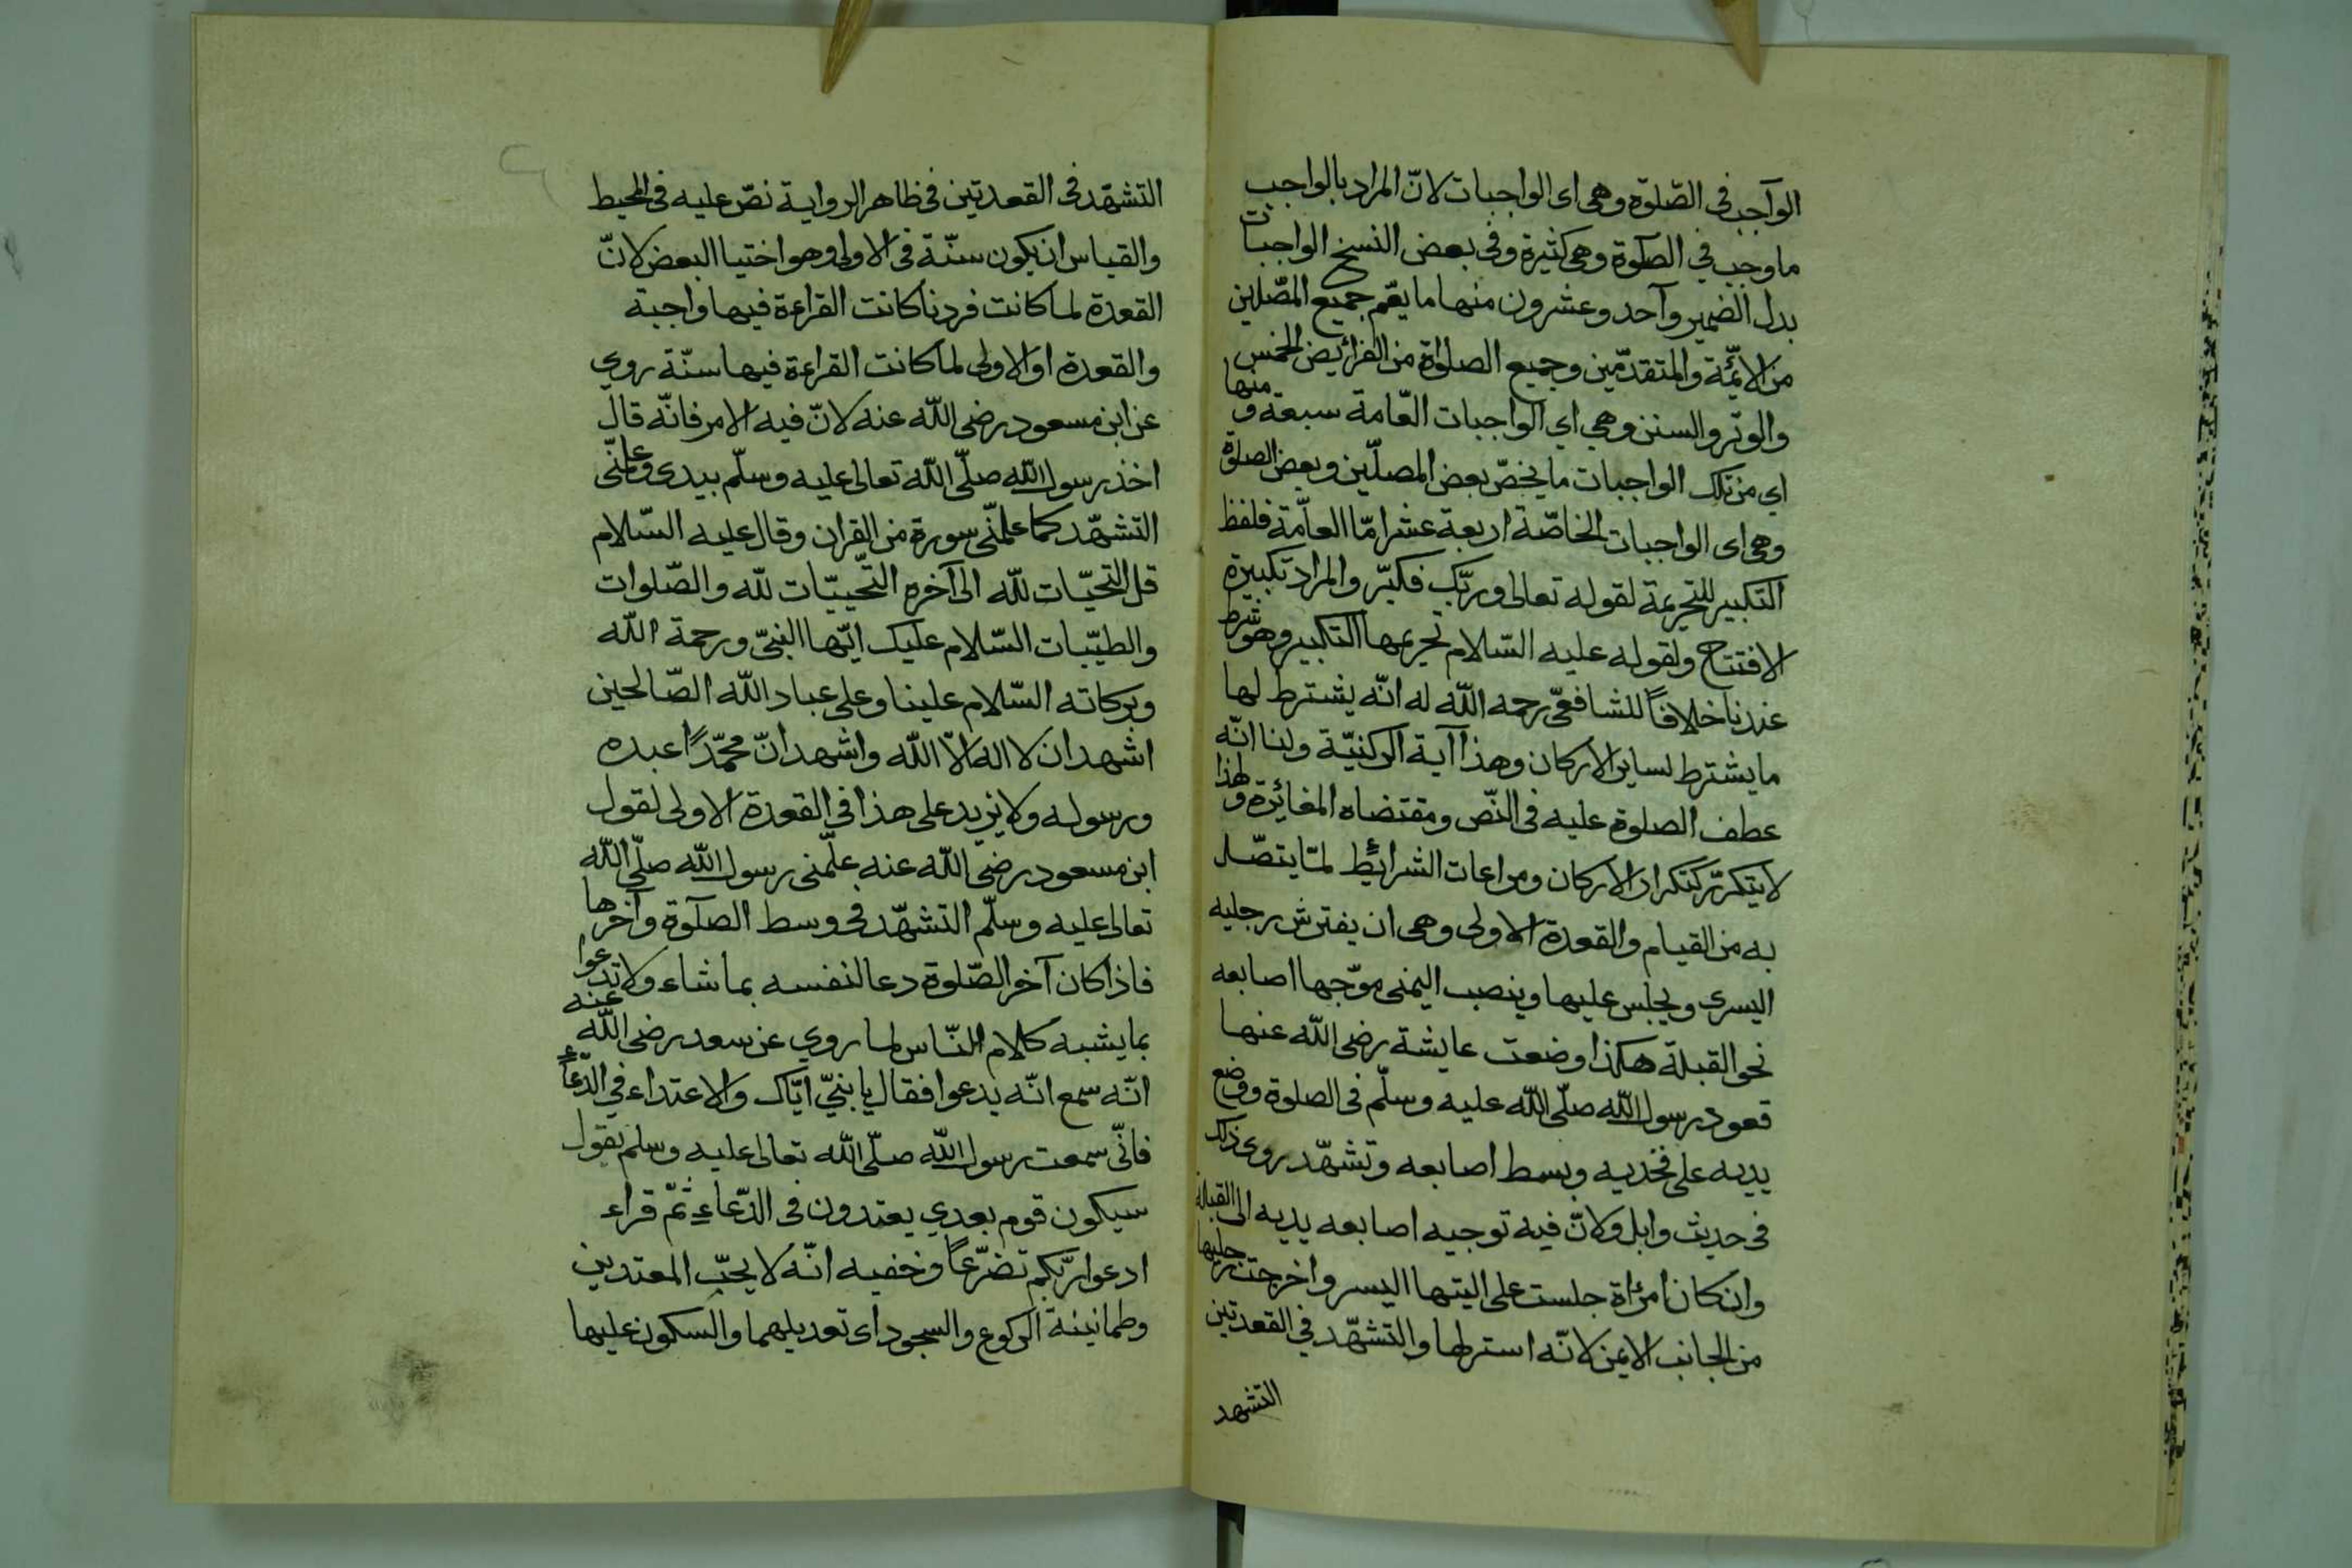 الوآجب فى الصّلوة وهى اى الواجبات لانّ المراد بالواجب
ما وجب في الصّلوة وهى كثيرة وفى بعض النسخ الواجبات
بدل الضمير وآحد وعشرون منها ما يعّم جميع المصّلين
من الايمّة والمتقدّمين وجميع الصلواة من الفرائيض الخمس
والوتر والسنن وهي اي الواجبات العّامة سبعة ومنها
اي من تلك الواجبات ما يخصّ بعض المصلّين وبعض الصلوة
وهى اى الواجبات الخاصّة اربعة عشر امّا العامّة فلفظ
التكبير للتحريمة لقوله تعالى وربّك فكبّر والمراد تكبيرة
الافتتاح ولقوله عليه السّلام تحريمها التكبير وهو شرط
عندنا خلافاً للشافعّى رحمه الله له انّه يشترط لها
ما يشترط لساير الاركان وهذا آية الركنيّة ولنا انّه
عطف الصلوة عليه فى النّص ومقتضاه المغائرة ولهذا
لا يتكرّر كتكرار الاركان ومراعات الشرائط لمّا يتصّل
به من القيام والقعدة الاولى وهى ان يفترش رجليه
اليسرى ويجلس عليها وينصب اليمنى موّجها اصابعه
نحو القبلة هكذا وضعت عايشة رضى الله عنها
قعود رسول الله صلّى الله عليه وسلّم فى الصلوة ووضع
يديه على فخديه وبسط اصابعه وتشهّد روى ذلك
فى حديث وابل ولانّ فيه توجيه اصابعه يديه الى القبلة
وان كان امرأة جلست على اليتها اليسر واخرجت رجليها
من الجانب الايمن لانّه استرلها والتشهّد في القعدتين
التشهد
التشهّد فى القعدتين فى ظاهر الرواية نصّ عليه فى المحيط
والقياس ان يكون سنّة فى الاولى وهو اختيا البعض لانّ
القعدة لما كانت فردنا كانت القراءة فيها واجبة
والقعدة او الاولى لما كانت القراءة فيها سنّة روي
عن ابن مسعود رضى الله عنه لانّ فيه الامر فانّه قال
اخذ رسول الله صلّى الله تعالى عليه وسلّم بيدى وعلمنّى
التشهّد كما علمنّى سورة من القرآن وقال عليه السّلام
قل التحيّات للّه الى آخره التّحيّيات للّه والصّلوات
والطيّبات السّلام عليك ايّها النبىّ ورحمة الله
وبركاته السّلام علينا وعلى عباد الله الصّالحين
اشهد ان لا اله الاّ الله واشهد انّ محمّدًا عبده
ورسوله ولا يزيد على هذا فى القعدة الاولى لقول
ابن مسعود رضى الله عنه علّمنى رسول الله صلّى الله
تعالى عليه وسلّم التشهّد فى وسط الصلوة وآخرها
فاذا كان آخر الصّلوة دعا لنفسه بما شاء ولا تدعوا
بما يشبه كلام النّاس لما روي عن سعد رضى الله عنه
انّه سمع انّه يدعوا فقال يا بنيّ ايّاك والاعتداء في الدّعاء
فانّى سمعت رسول الله صلّى الله تعالى عليه وسلم يقول
سيكون قوم بعدي يعتدون فى الدّعاء ثمّ قراء
ادعوا ربّكم تضرّعاً وخفيه انّه لا يحبّ المعتدين
وطمانينة الركوع والسجود اى تعديلهما والسكون عليها